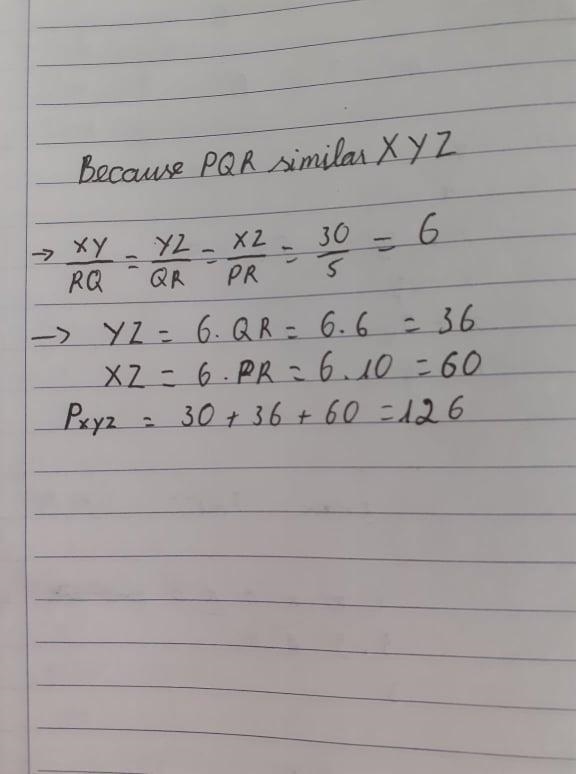 Because PQR similar XYZ
→ XY/RQ = YZ/QR = XZ/PR = 30/5 = 6
→ YZ = 6. QR = 6.6 = 36
XZ = 6. PR = 6.10 = 60
Pxyz = 30 + 36 + 60 = 126